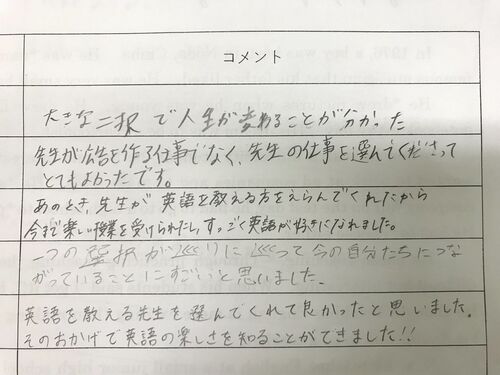 コメント
大きな二択で人生が変わることが分かった
先生が広告を作る仕事でなく、先生の仕事を選んでくださって
とてもよかったです。
あのとき、先生が英語を教える方をえらんでくれたから
今まで楽しい授業を受けられたし、すっごく英語が好きになれました。
一つの選択が巡りに巡って今の自分たちにつな
がっていることにすごいと思いました。
英語を教える先生を選んでくれて良かったと思いました。
そのおかげで英語の楽しさを知ることができました!!